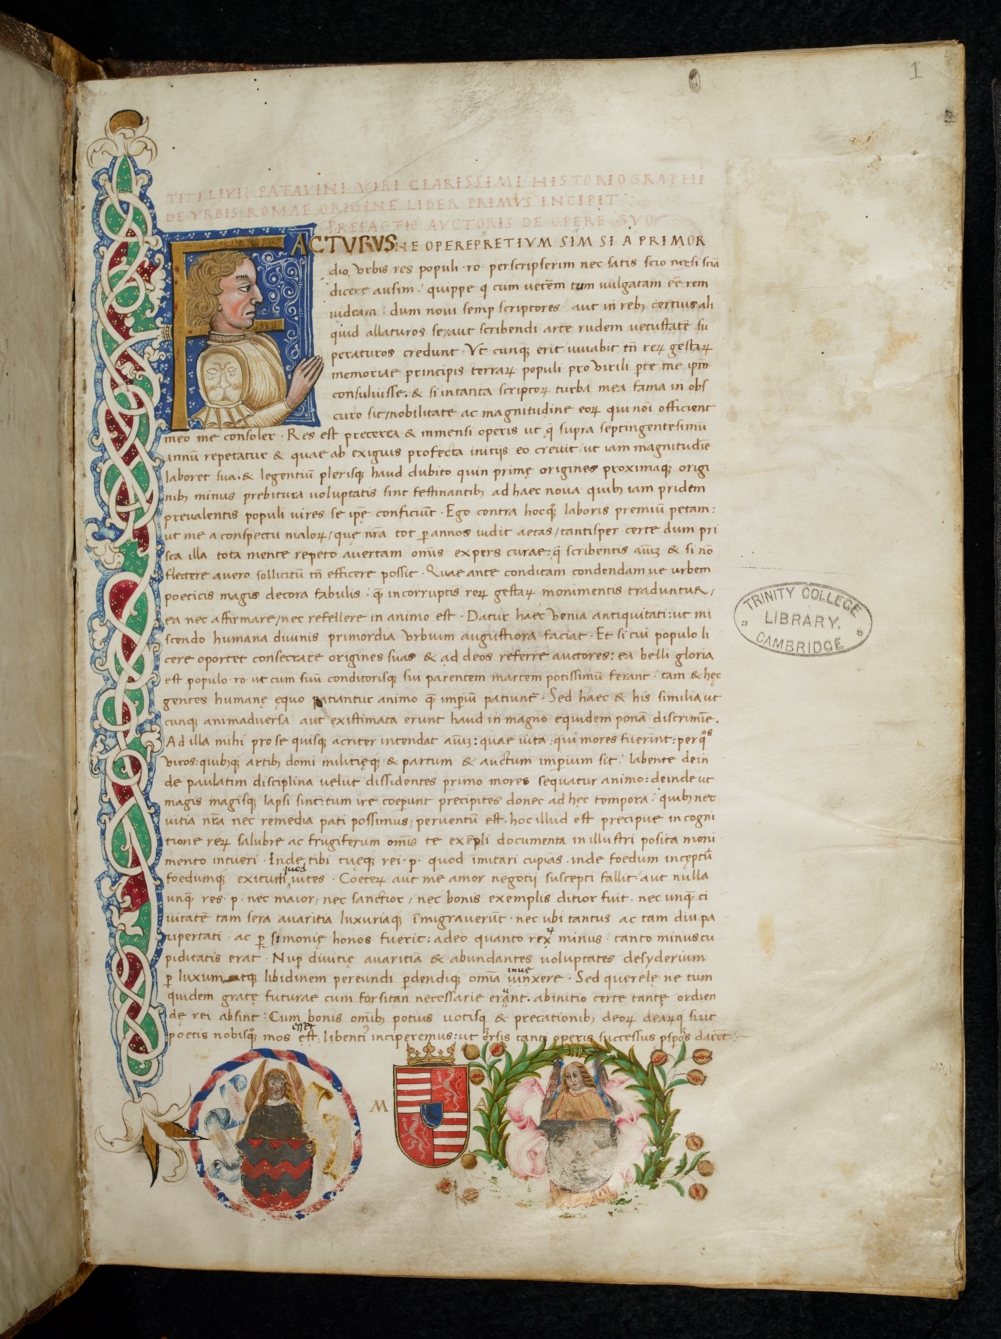 1
TITI LIVII PATAVINI VIRI CLARISSIMI HISTORIOGRAPHI
DE VRBIS ROMAE ORIGINE LIBER PRIMVS INCIPIT
PREFACTIO AVCTORIS DE OPERE SVO
FACTVRVS NE OPEREPRETIVM SIM SI A PRIMOR
dio Vrbis res populi ro perscripserim nec satis scio nec si sciā
dicere ausim: quippe q cum ueterem tum uulgatam eē rem
uideam: dum noui semp scriptores aut in reb; certius ali
quid allaturos se/aut scribendi arte rudem uetustatē su
peraturos credunt. Vt cunq; erit iuuabit tn̄ reꝝ gestaꝝ
memoriae principis terraꝝ populi pro virili pte me ipm
consuluisse. & si in tanta scriptoꝝ turba mea fama in obs
curo sit/nobilitate ac magnitudine eoꝝ qui noī officient
meo me consoler. Res est preterea & inmensi operis ut q̄ supra septingentesimū
annū repetatur & quae ab exiguis profecta initijs eo creuit ut iam magnitudie
laboret sua. & legentiū plerisq; haud dubito quin primę origines proximaq; origi
nib; minus prebitura uoluptatis sint festinantib; ad haec noua quib; iam pridem
preualentis populi uires se ipę conficiunt. Ego contra hocq; laboris premiū petam:
ut me a conspectu maloꝝ/que nr̄a tot ꝑ annos uidit aetas/tantisper certe dum pri
sca illa tota mente repeto auertam omīs expers curae: q̄ scribentis aīuȝ & si nō
flectere a uero sollicitū tn̄ efficere possit. Quae ante conditam condendam ue urbem
poeticis magis decora fabulis: q̄ incorruptis reꝝ gestaꝝ monimentis traduntur/
ea nec affirmare/nec refellere in animo est. Datur haec Venia antiquitati: ut mi
scendo humana diuinis primordia Vrbium augustiora faciat. Et si cui populo li
cere oportet consecrare origines suas & ad deos referre auctores: ea belli gloria
est populo ro ut cum suū conditorisq; sui parentem martem potissimū ferant. tam & hęc
gentes humanę ęquo patiantur animo q̄ impiū patiunt. Sed haec & his similia ut
cunq; animaduersa aut existimata erunt haud in magno equidem ponā discrimīe.
Ad illa mihi pro se quisq; acriter intendat aīuȝ: quae uita: qui mores fuerint: per q̊s
Viros: quibq; artib; domi militięq; & partum & auctum impium sit. labente dein
de paulatim disciplina uelut dissidentes primo mores sequatur animo: deinde ut
magis magisq; lapsi sint: tum ire coepunt precipites donec ad hęc tempora: quib; nec
uitia nr̄a nec remedia pati possimus/peruentū est. hoc illud est precipue in cogni
tione reꝝ salubre ac frugiferum omīs te exēpli documenta in illustri posita moni
mento intueri. Inde tibi tuęq; rei. p. quod imitari cupias. inde foedum inceptū
foedumq; exitum quod uites. Coeteꝝ aut me amor negotij suscepti fallit aut nulla
unq̄ res. p. nec maior: nec sanctior/nec bonis exemplis ditior fuit. nec unq̄ ci
uitatē tam sera auaritia luxuriaq; īmigrauerūt. nec ubi tantus ac tam diu pa
upertati ac ꝑsimonię honos fuerit: adeo quanto rex minus tanto minus cu
piditatis erat. Nup diuitię auaritiā & abundantes uoluptates desyderium
ꝑ luxum atq; libidinem pereundi ꝑdendiq; omīa inuexere. Sed querelę ne tum
quidem gratę futurae cum forsitan necessarie erūnt. ab initio certe tantę ordien
dę rei absint: Cum bonis omīb; potius uotisq; & precationib; deoꝝ dearꝙ siuit
poetis nobisq; mos esset libentī inciperemus: ut orsis tanti operis successus pspōs darēt.
M A
TRINITY COLLEGE
LIBRARY.
CAMBRIDGE